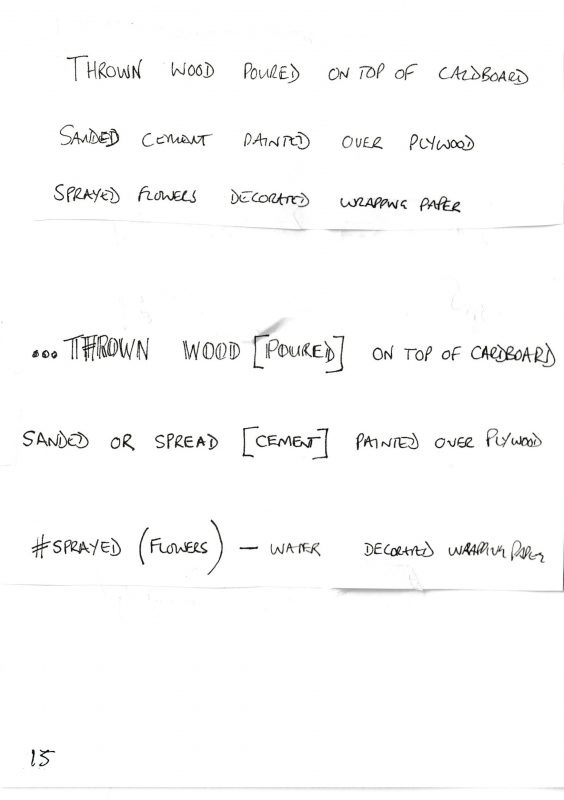 THROWN WOOD POURED ON TOP OF CARDBOARD
SANDED CEMENT PAINTED OVER PLYWOOD
SPRAYED FLOWERS DECORATED WRAPPING PAPER
...THROWN WOOD [POURED] ON TOP OF CARDBOARD
SANDED OR SPREAD [CEMENT] PAINTED OVER PLYWOOD
#SPRAYED (FLOWERS) — WATER DECORATED WRAPPING PAPER
15